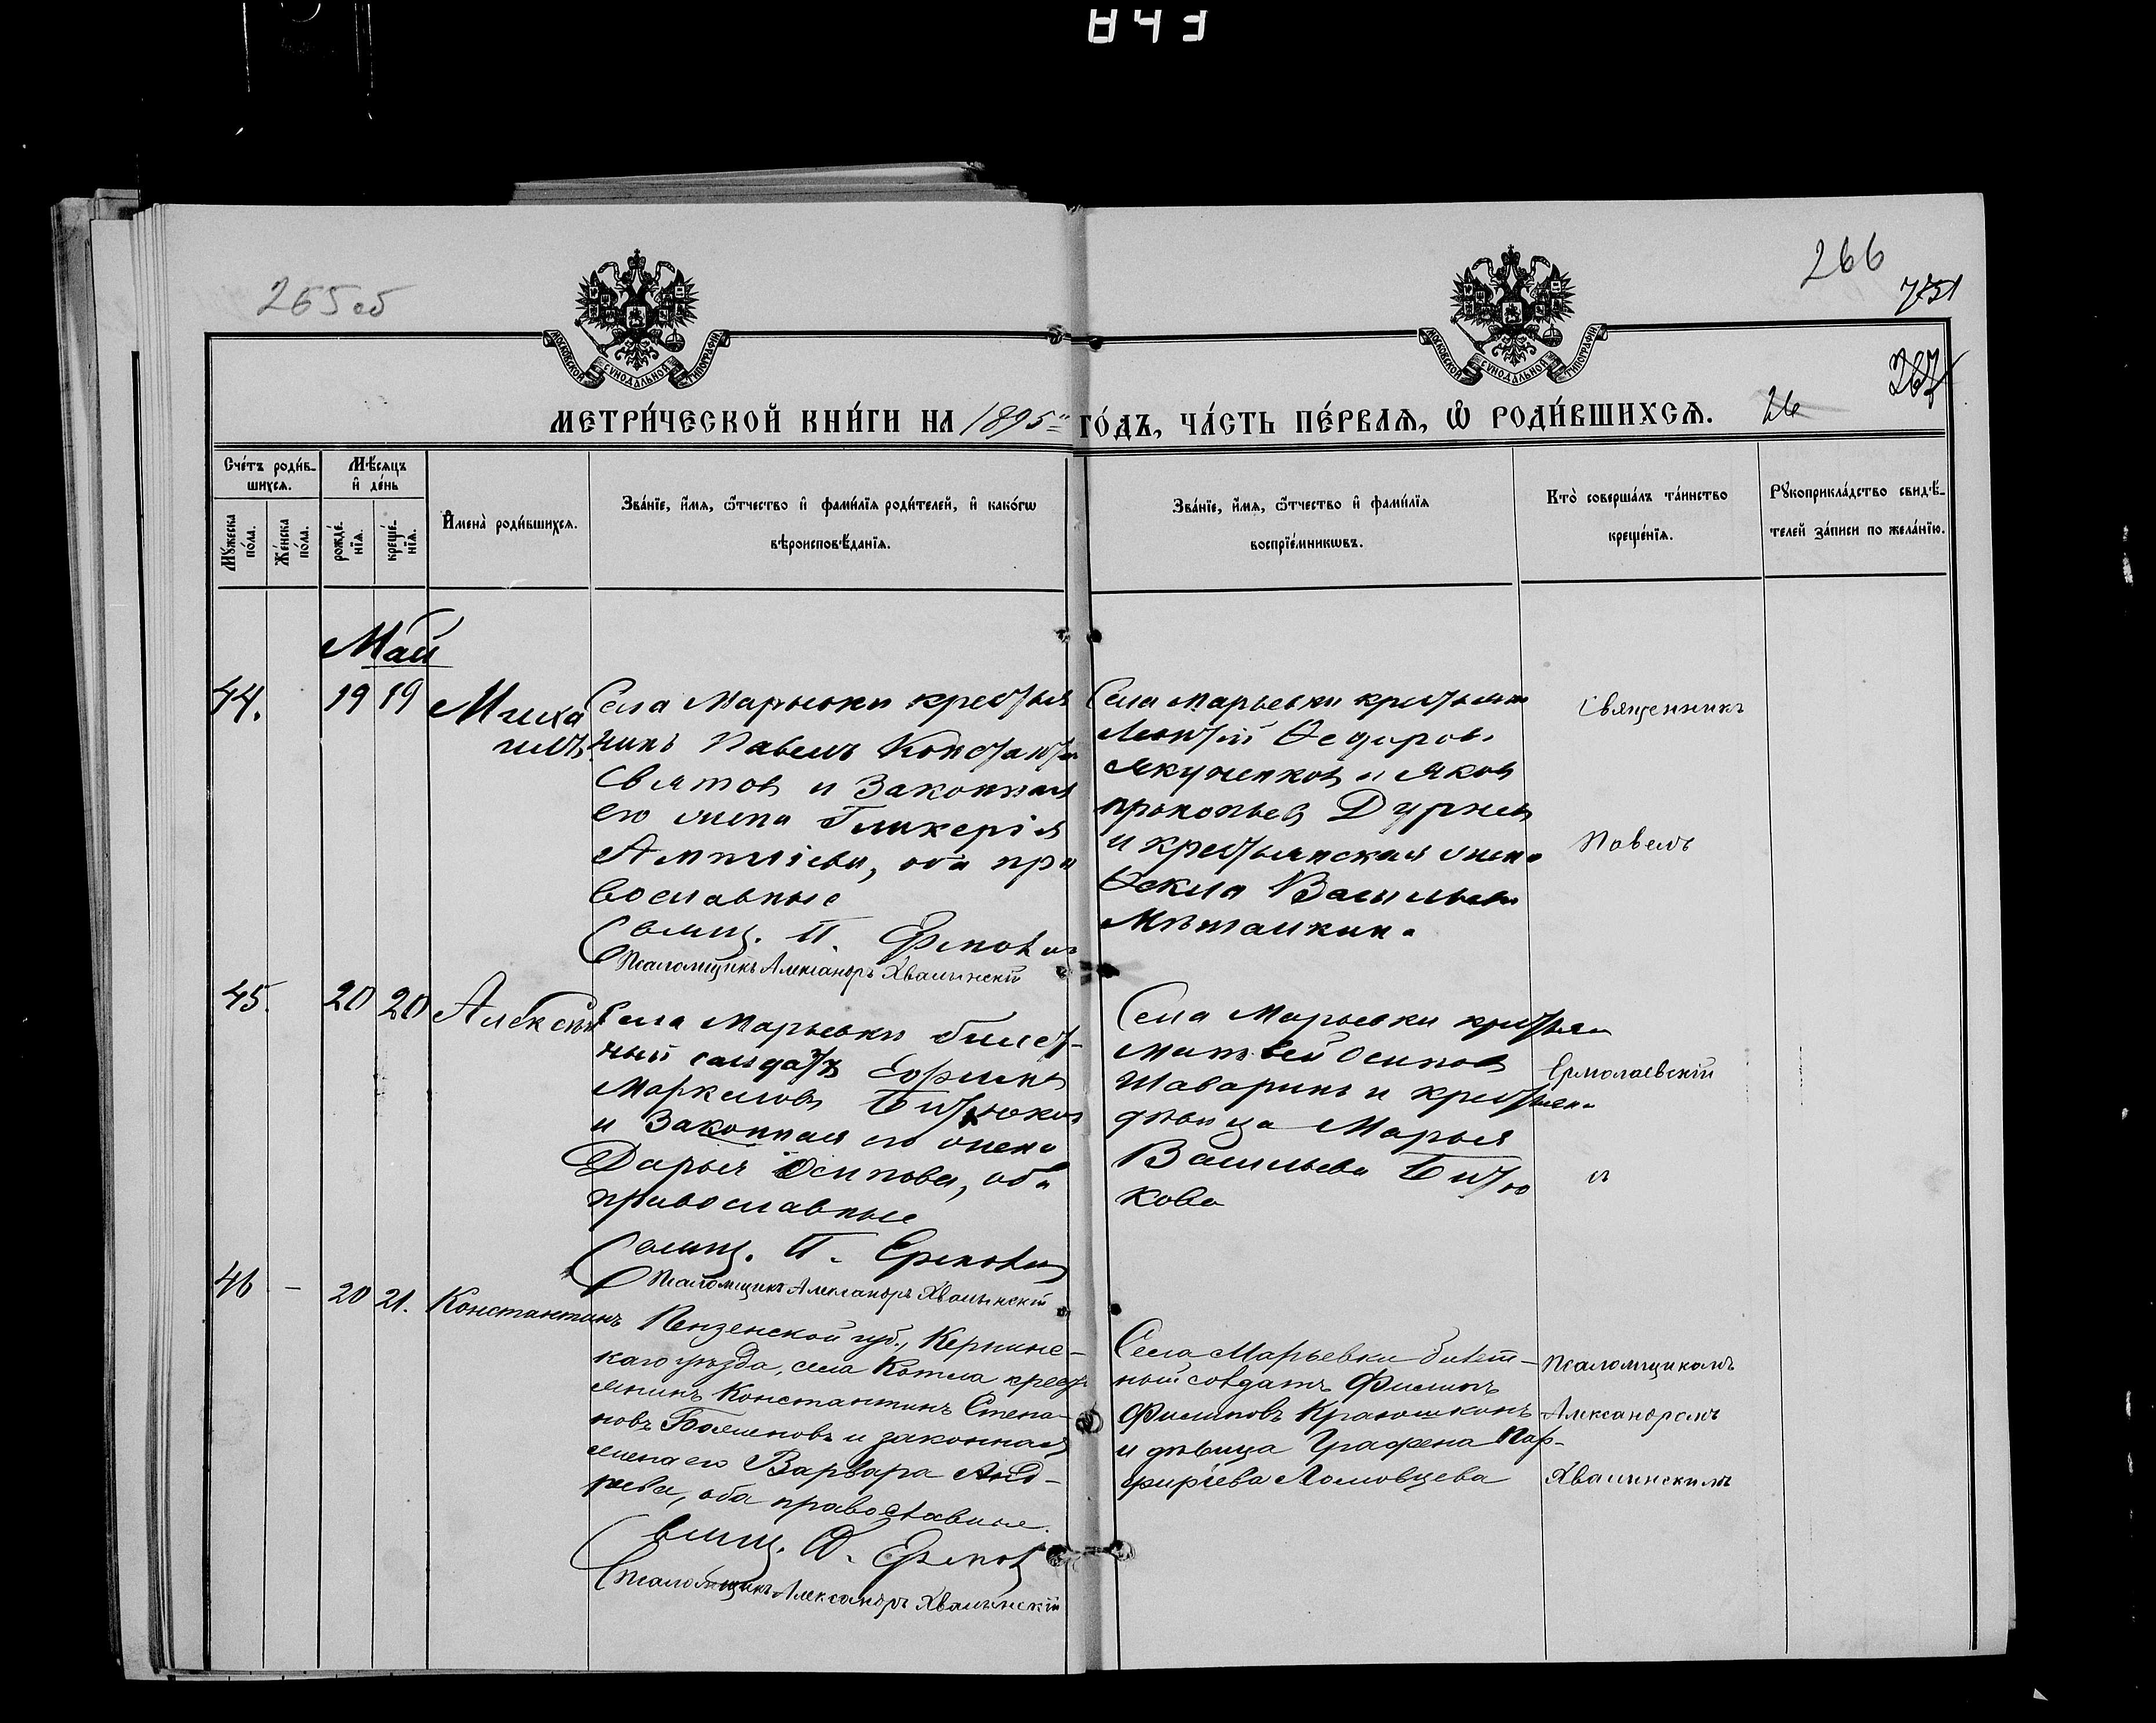 843
265об
266
751
267
МОСКОВСКОЙ СУНОДАЛЬНОЙ ТИПОГРАФІИ
МОСКОВСКОЙ СУНОДАЛЬНОЙ ТИПОГРАФІИ
МЕТРИ́ЧЕСКОЙ КНИ́ГИ НА 1895 ГО́ДЪ, ЧА́СТЬ ПЕ́РВАѦ, Ѡ҆ РОДИ́ВШИХСѦ. 26
Сче́тъ роди́в-
шихсѧ.
Мꙋ́жеска по́ла.
Же́нска по́ла.
Мѣ́сѧцъ
и҆ де́нь
рожде́нїѧ.
креще́нїѧ.
И҆мена̀ роди́вшихсѧ.
Зва́нїе, и҆́мѧ, ѻ҆́тчество и҆ фами́лїѧ роди́телей, и҆ како́гѡ
вѣроисповѣ́данїѧ.
Зва́нїе, и҆́мѧ, ѻ҆́тчество и҆ фами́лїѧ
воспрїе́мникѡвъ.
Кто̀ соверша́лъ та́инство
креще́нїѧ.
Рꙋкоприкла́дство свидѣ́-
телей за́писи по жела́нїю.
Май
44.
19 19
Миха
илъ.
Села Марьевки крестья
нинъ Павелъ Констант
Святов и законная
его жена Гликерія
оба пра
вославные
Свящ. П. Ермолаев
Псаломщикъ Александръ Хвалынскій
Села Марьевки крестьян
Леонтій Федоров
и Яков
Прокопьев Дурнев
и крестьянская жена
Фекла Васильева
Священникъ
Павелъ
45.
20 20
Алексѣй
Села Марьевки билет-
ный солдатъ Ефимъ
Маркелов Битюков
и законная его жена
Дарья Осипова, оба
православные
Свящ. П. Ермолаев
Псаломщикъ Александръ Хвалынскій
Села Марьевки крестьян
Матвей Осипов
Шаваринъ и крестьян
дѣвица Марья
Васильева Битю
кова
Ермолаевскій
и
46 –
20 21.
Константинъ
Пензенской губ., Керинс-
каго уѣзда, села Котла крест
янинъ Константинъ Степа-
новъ и законная
жена его Варвара Анд-
реева, оба православные.
Свящ. П. Ермол
Псаломщикъ Александръ Хвалынскій
Села Марьевки билет-
ный солдатъ Филипъ
Филиповъ Краюшкинъ
и дѣвица Графена Пор-
фирiева Ломовцева
Псаломщикомъ
Александромъ
Хвалынскимъ